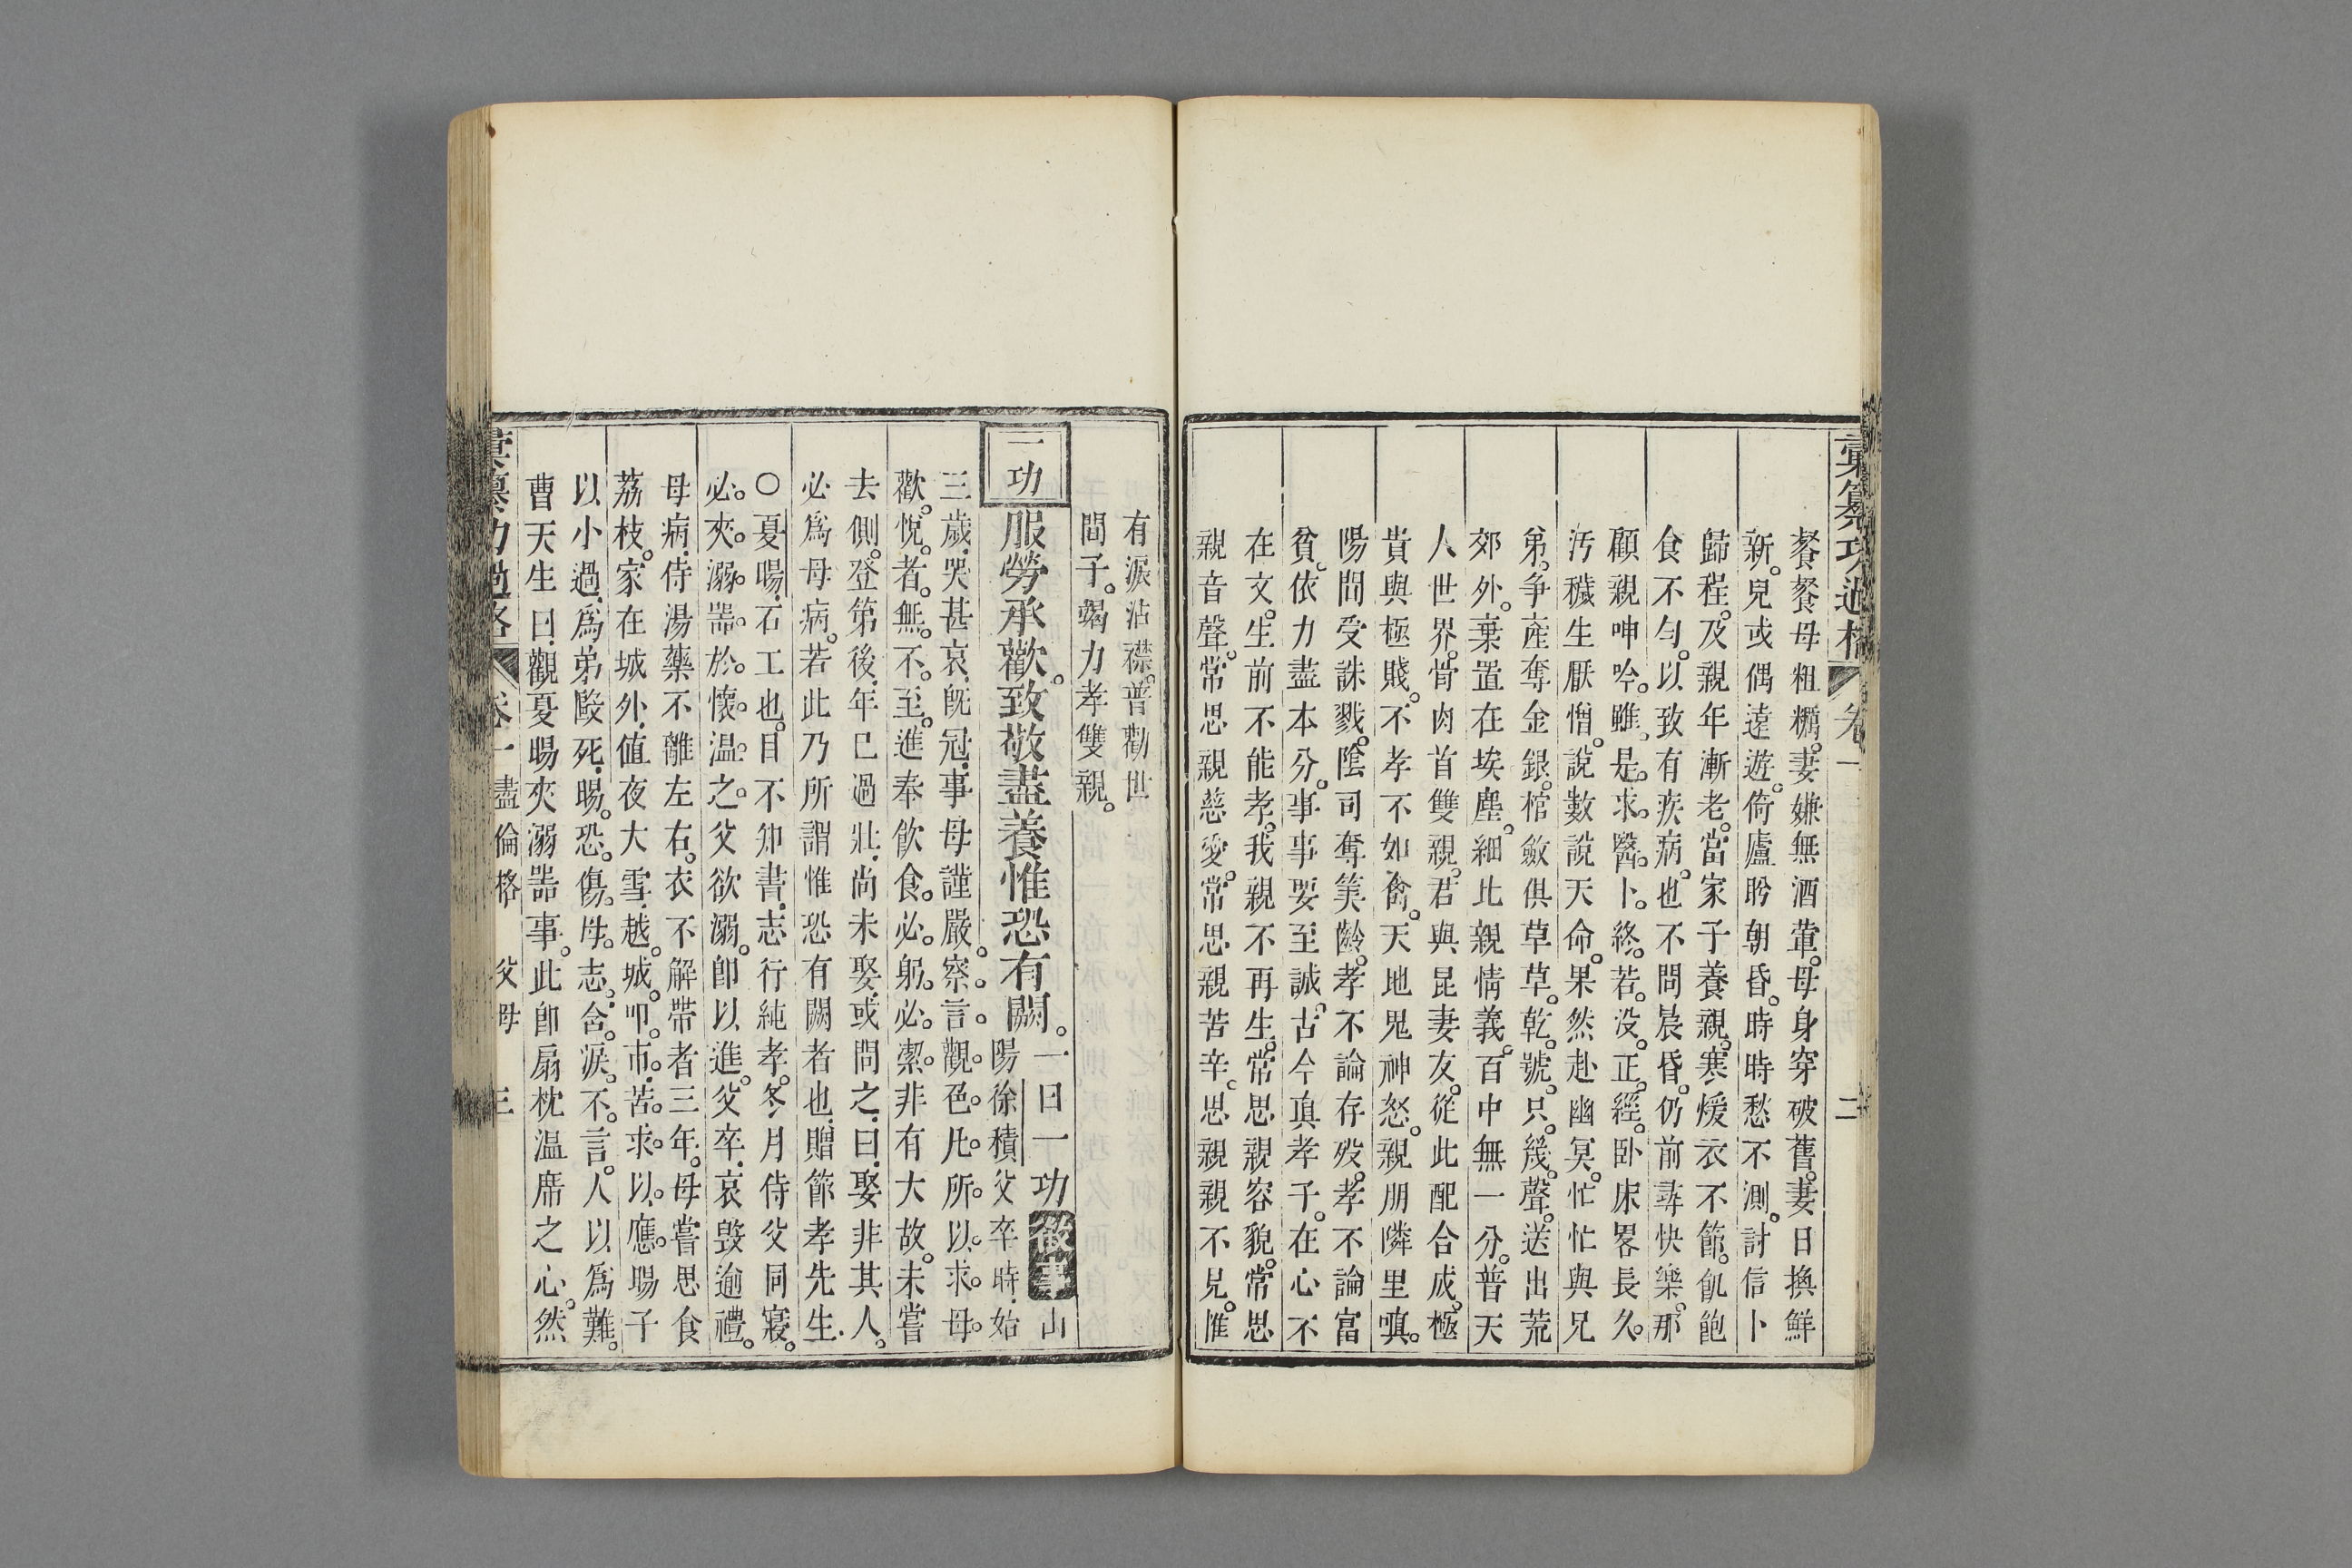 彙纂功過格 卷一 二
餐餐母粗糲。妻嫌無酒葷。母身穿破舊。妻日換鮮
新。兒或偶遠遊。倚廬盻朝昏。時時愁不測。討信卜
歸程。及親年漸老。當家子養親。寒煖衣不節。飢飽
食不勻。以致有疾病。也不問晨昏。仍前尋快樂。那
顧親呻吟。雖是求醫卜。終若没正經。卧床畧長久。
汚穢生厭憎。說數說天命。果然赴幽冥。忙忙與兄
弟。爭產奪金銀。棺斂俱草草。乾號只幾聲。送出荒
郊外。棄置在埃塵。細比親情義。百中無一分。普天
人世界。骨肉首雙親。君與昆妻友。從此配合成。極
貴與極賤。不孝不如禽。天地鬼神怒。親朋隣里嗔。
陽間受誅戮。陰司奪筭齡。孝不論存歿。孝不論富
貧。依力盡本分。事事要至誠。古今眞孝子。在心不
在文。生前不能孝。我親不再生。常思親容貌。常思
親音聲。常思親慈愛。常思親苦辛。思親親不見。惟
有淚沾襟。普勸世
間子。竭力孝雙親。
一功 服勞承歡。致敬盡養惟恐有闕。一日一功 做事 山
陽徐積父卒時。始
三歲。哭甚哀。旣冠。事母謹嚴。察言觀色。凡所以求母
歡悅者。無不至。進奉飮食。必躬必潔。非有大故。未嘗
去側。登第後。年已過壯。尚未娶。或問之。曰。娶非其人。
必爲母病。若此乃所謂惟恐有闕者也。贈節孝先生。
○夏暘。石工也。目不知書。志行純孝。冬月侍父同寢。
必夾溺器於懷温之。父欲溺。卽以進。父卒。哀毀逾禮。
母病。侍湯藥不離左右。衣不解帶者三年。母嘗思食
荔枝。家在城外。値夜大雪。越城叩市。苦求以應。暘子
以小過。爲弟毆死。暘恐傷母志。含淚不言。人以爲難。
曹天生曰。觀夏暘夾溺器事。此卽扇枕温席之心。然
彙纂功過格 卷一 盡倫格 父母 三